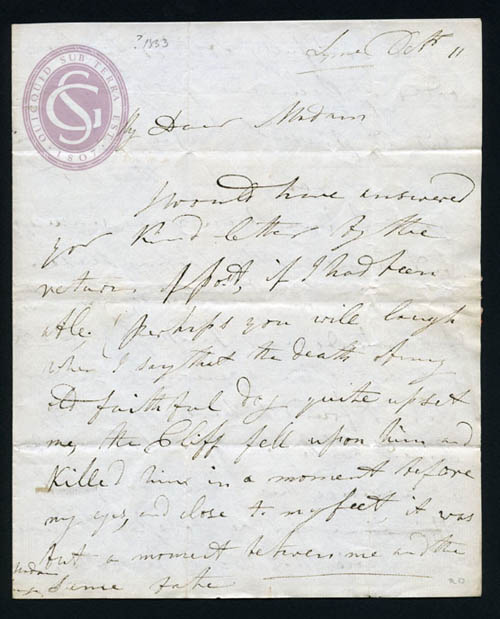 ? 1833
Lyme Octr 11
QUICQUID SUB TERRA EST
GS
1807
My Dear Madam
I would have answered
your Kind letter by the
return of post, if I had been
able. Perhaps you will laugh
when I say that the death of my
old faithful dog quite upset
me, the Cliff fell upon him and
Killed him in a moment before
my eyes, and close to my feet, it was
but a moment between me and the
Same fate